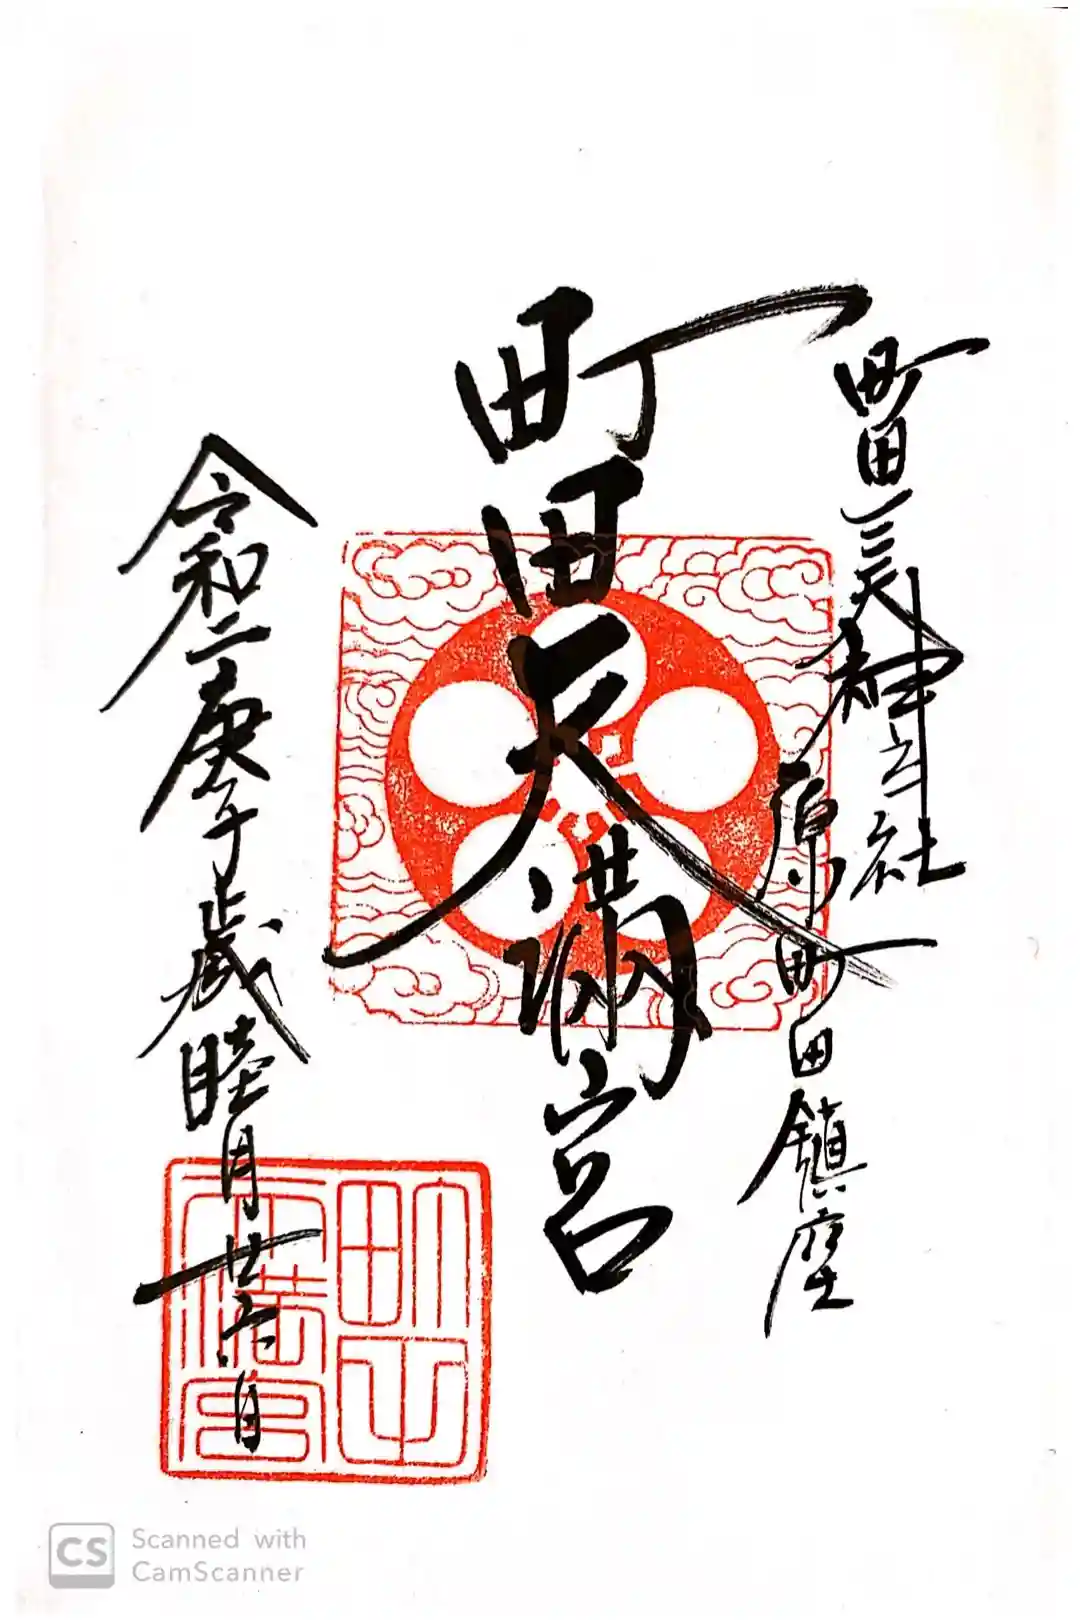 町田三天神之社
原町田鎮座
町田天満宮
令和二庚子歳睦月廿六日
町田天満宮
CS Scanned with
CamScanner